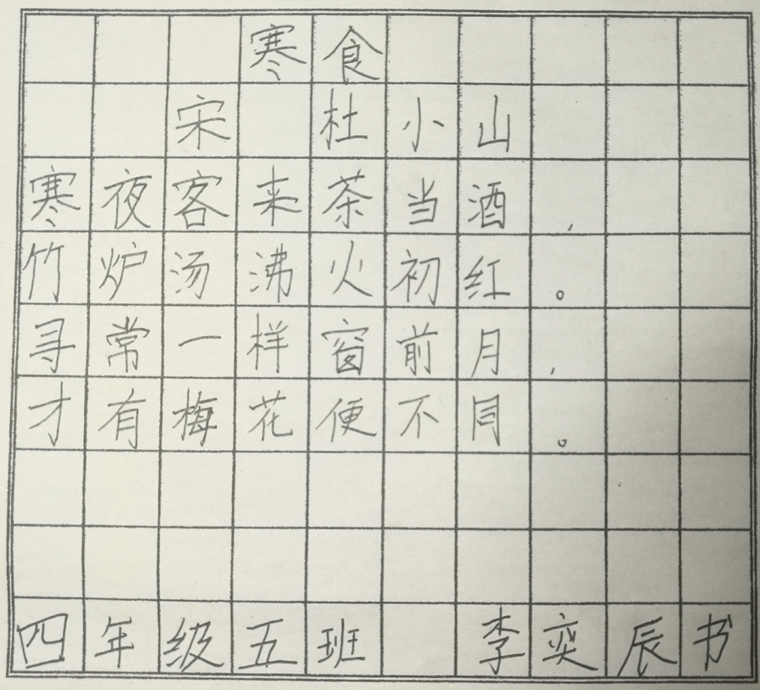 寒食
宋 杜小山
寒夜客来茶当酒，
竹炉汤沸火初红。
寻常一样窗前月，
才有梅花便不同。
四年级五班 李奕辰书